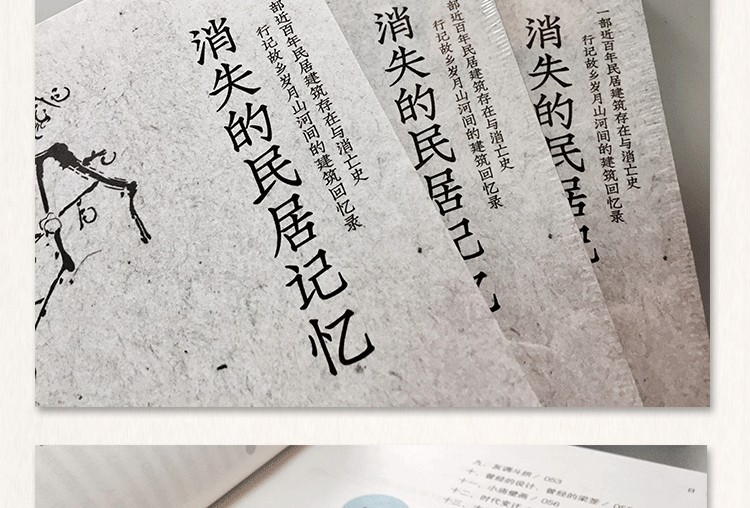 消失的民居记忆
部近百年民居建筑存在与消亡史
行记故乡岁月山河间的建筑回忆录
消失的民居记忆
部近百年民居建筑存在与消亡史
行记故乡岁月山河间的建筑回忆录
消失的民居记
一部近百年民居建筑存在与消亡史
行记故乡岁月山河间的建筑回忆录
九、友调斗拱 / 053
十、曾经的设计、曾经的梁签 / 055
十一、小庙壁画 / 056
十二、时代变迁
十三、
目